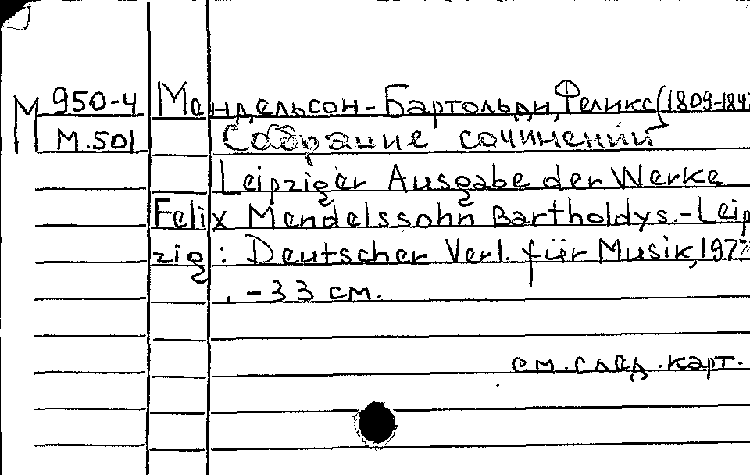 М 950-4 Мендельсон-Бартольди, Феликс (1809-184
М.501 Собрание сочинений
Leipziger Ausgabe der Werke
Felix Mendelssohn Bartholdys.-Leip
zig: Deutscher Verl. für Musik, 197
. -33 см.
см. след. карт.